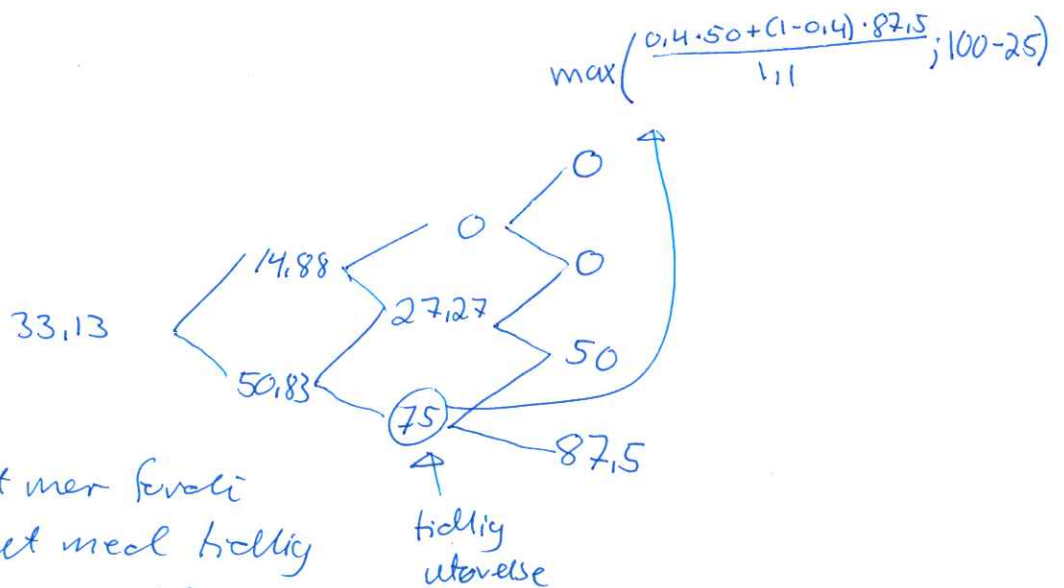 max(0,4·50+(1-0,4)·87,5 / 1,1 ; 100-25)
0
0
14,88
0
33,13
27,27
50
50,83
75
87,5
t mer
et med tidlig
tidlig
utøvelse